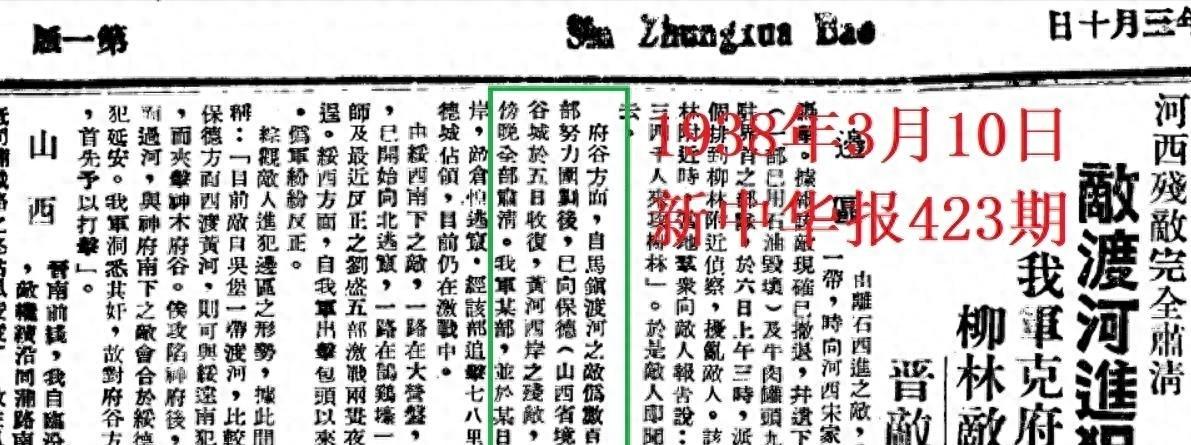 年三月十日
Sin Zhungxua Bao
第一版
1938年3月10日
新中华报423期
河西殘敵完全肅清
敵渡河進犯
我軍克府
柳林敵
晉敵
邊區
由離石西進之敵，
一帶，時向河西宋家
敵現確已撤退，并遺下
（一部已用石油毀壞）及牛肉罐頭九
駐界首之部隊，於六日上午三時，派
個排到柳林附近偵察，擾亂敵人。該
林附近時，當地羣衆向敵人報告說：
三四千人來攻柳林」。於是敵人即聞
去。
府谷方面，自馬鎮渡河之敵僞數百
部努力圍剿後，已向保德（山西省境
谷城於五日收復，黃河西岸之殘敵，
傍晚全部肅清。我軍某部，並於某日
岸，敵倉惶逃竄，經該部追擊七八里
德城佔領，目前仍在激戰中。
由綏西南下之敵，一路在大營盤，
，已開始向北逃竄，一路在鵲鷄壕一
師及最近反正之劉盛五部激戰兩晝夜
逞。綏西方面，自我軍出擊包頭以來
，僞軍紛紛反正。
綜觀敵人進犯邊區之形勢，據此間
稱：「目前敵自吳堡一帶渡河，比較
保德方面西渡黃河，則可與綏遠南犯
，而夾擊神木府谷。俟攻陷神府後，
過河，與神府南下之敵會合於綏德
犯延安。我軍洞悉其奸，故對府谷方
，首先予以打擊」。
山西
晉南前綫，我自臨汾
，敵機續沿同蒲路南